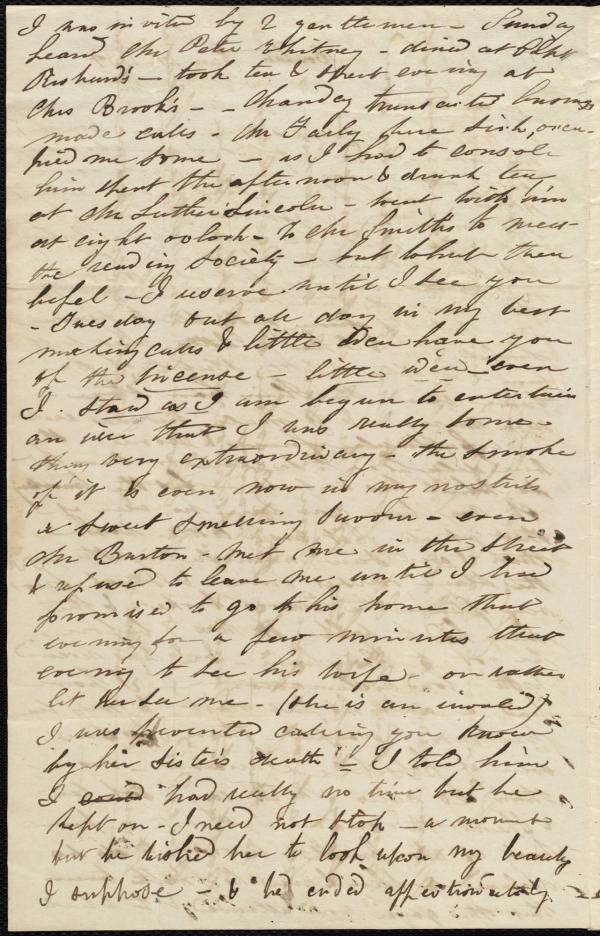 I was invited by 2 gentlemen - Sunday
heard Mr Peter Whitney - dined at
- took tea & spent evening at
Chs Brook's - - Monday transacted business
made calls - Mr Farley here sick, occu-
pied me some - as I had to console
him spent the afternoon & drank tea
at Mr Luther Lincoln - went with him
at eight oclock - to Mr Smith's to meet
the reading society - but what then
befel - I reserve until I see you
- Tuesday out all day in my best
making calls & little idea have you
of the incense - little idea - even
I. staid as I am begun to entertain
an idea that I was really some-
thing very extraordinary - the smoke
of it is even now in my nostrils
a sweet smelling savour - even
Mr Burton - met me in the street
& refused to leave me until I had
promised to go to his home that
evening for a few minutes that
evening to see his wife - or rather
let her see me - (she is an invalid)
I was prevented calling you know
by her sister's death - I told him
I could had really no time but he
kept on - I need not stop - a moment
but he wished her to look upon my beauty
I suppose - & he ended affectionately